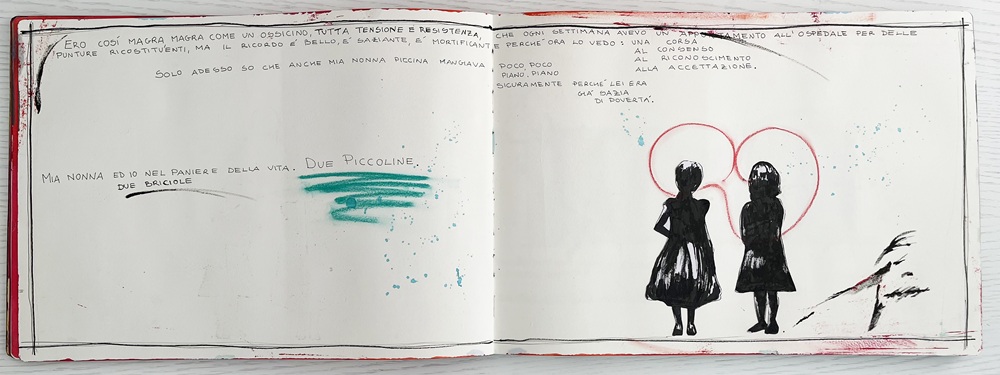 ERO COSÍ MAGRA MAGRA COME UN OSSICINO, TUTTA TENSIONE E RESISTENZA, CHE OGNI SETTIMANA AVEVO UN APPUNTAMENTO ALL'OSPEDALE PER DELLE
PUNTURE RICOSTITUENTI, MA IL RICORDO E' BELLO, E' SAZIANTE, E' MORTIFICANTE PERCHE' ORA LO VEDO: UNA CORSA
AL CONSENSO
AL RICONOSCIMENTO
ALLA ACCETTAZIONE.
SOLO ADESSO SO CHE ANCHE MIA NONNA PICCINA MANGIAVA POCO POCO
PIANO, PIANO
SICURAMENTE PERCHE' LEI ERA
GIA' SAZIA
DI POVERTA'.
MIA NONNA ED IO NEL PANIERE DELLA VITA. DUE PICCOLINE.
DUE BRICIOLE